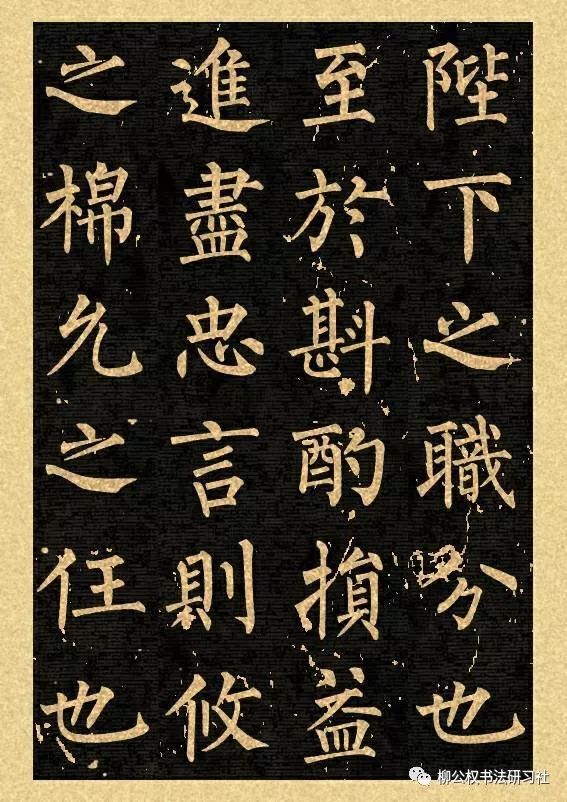 陛下之職分也
至於斟酌損益
進盡忠言則攸
之棉允之任也
柳公权书法研习社